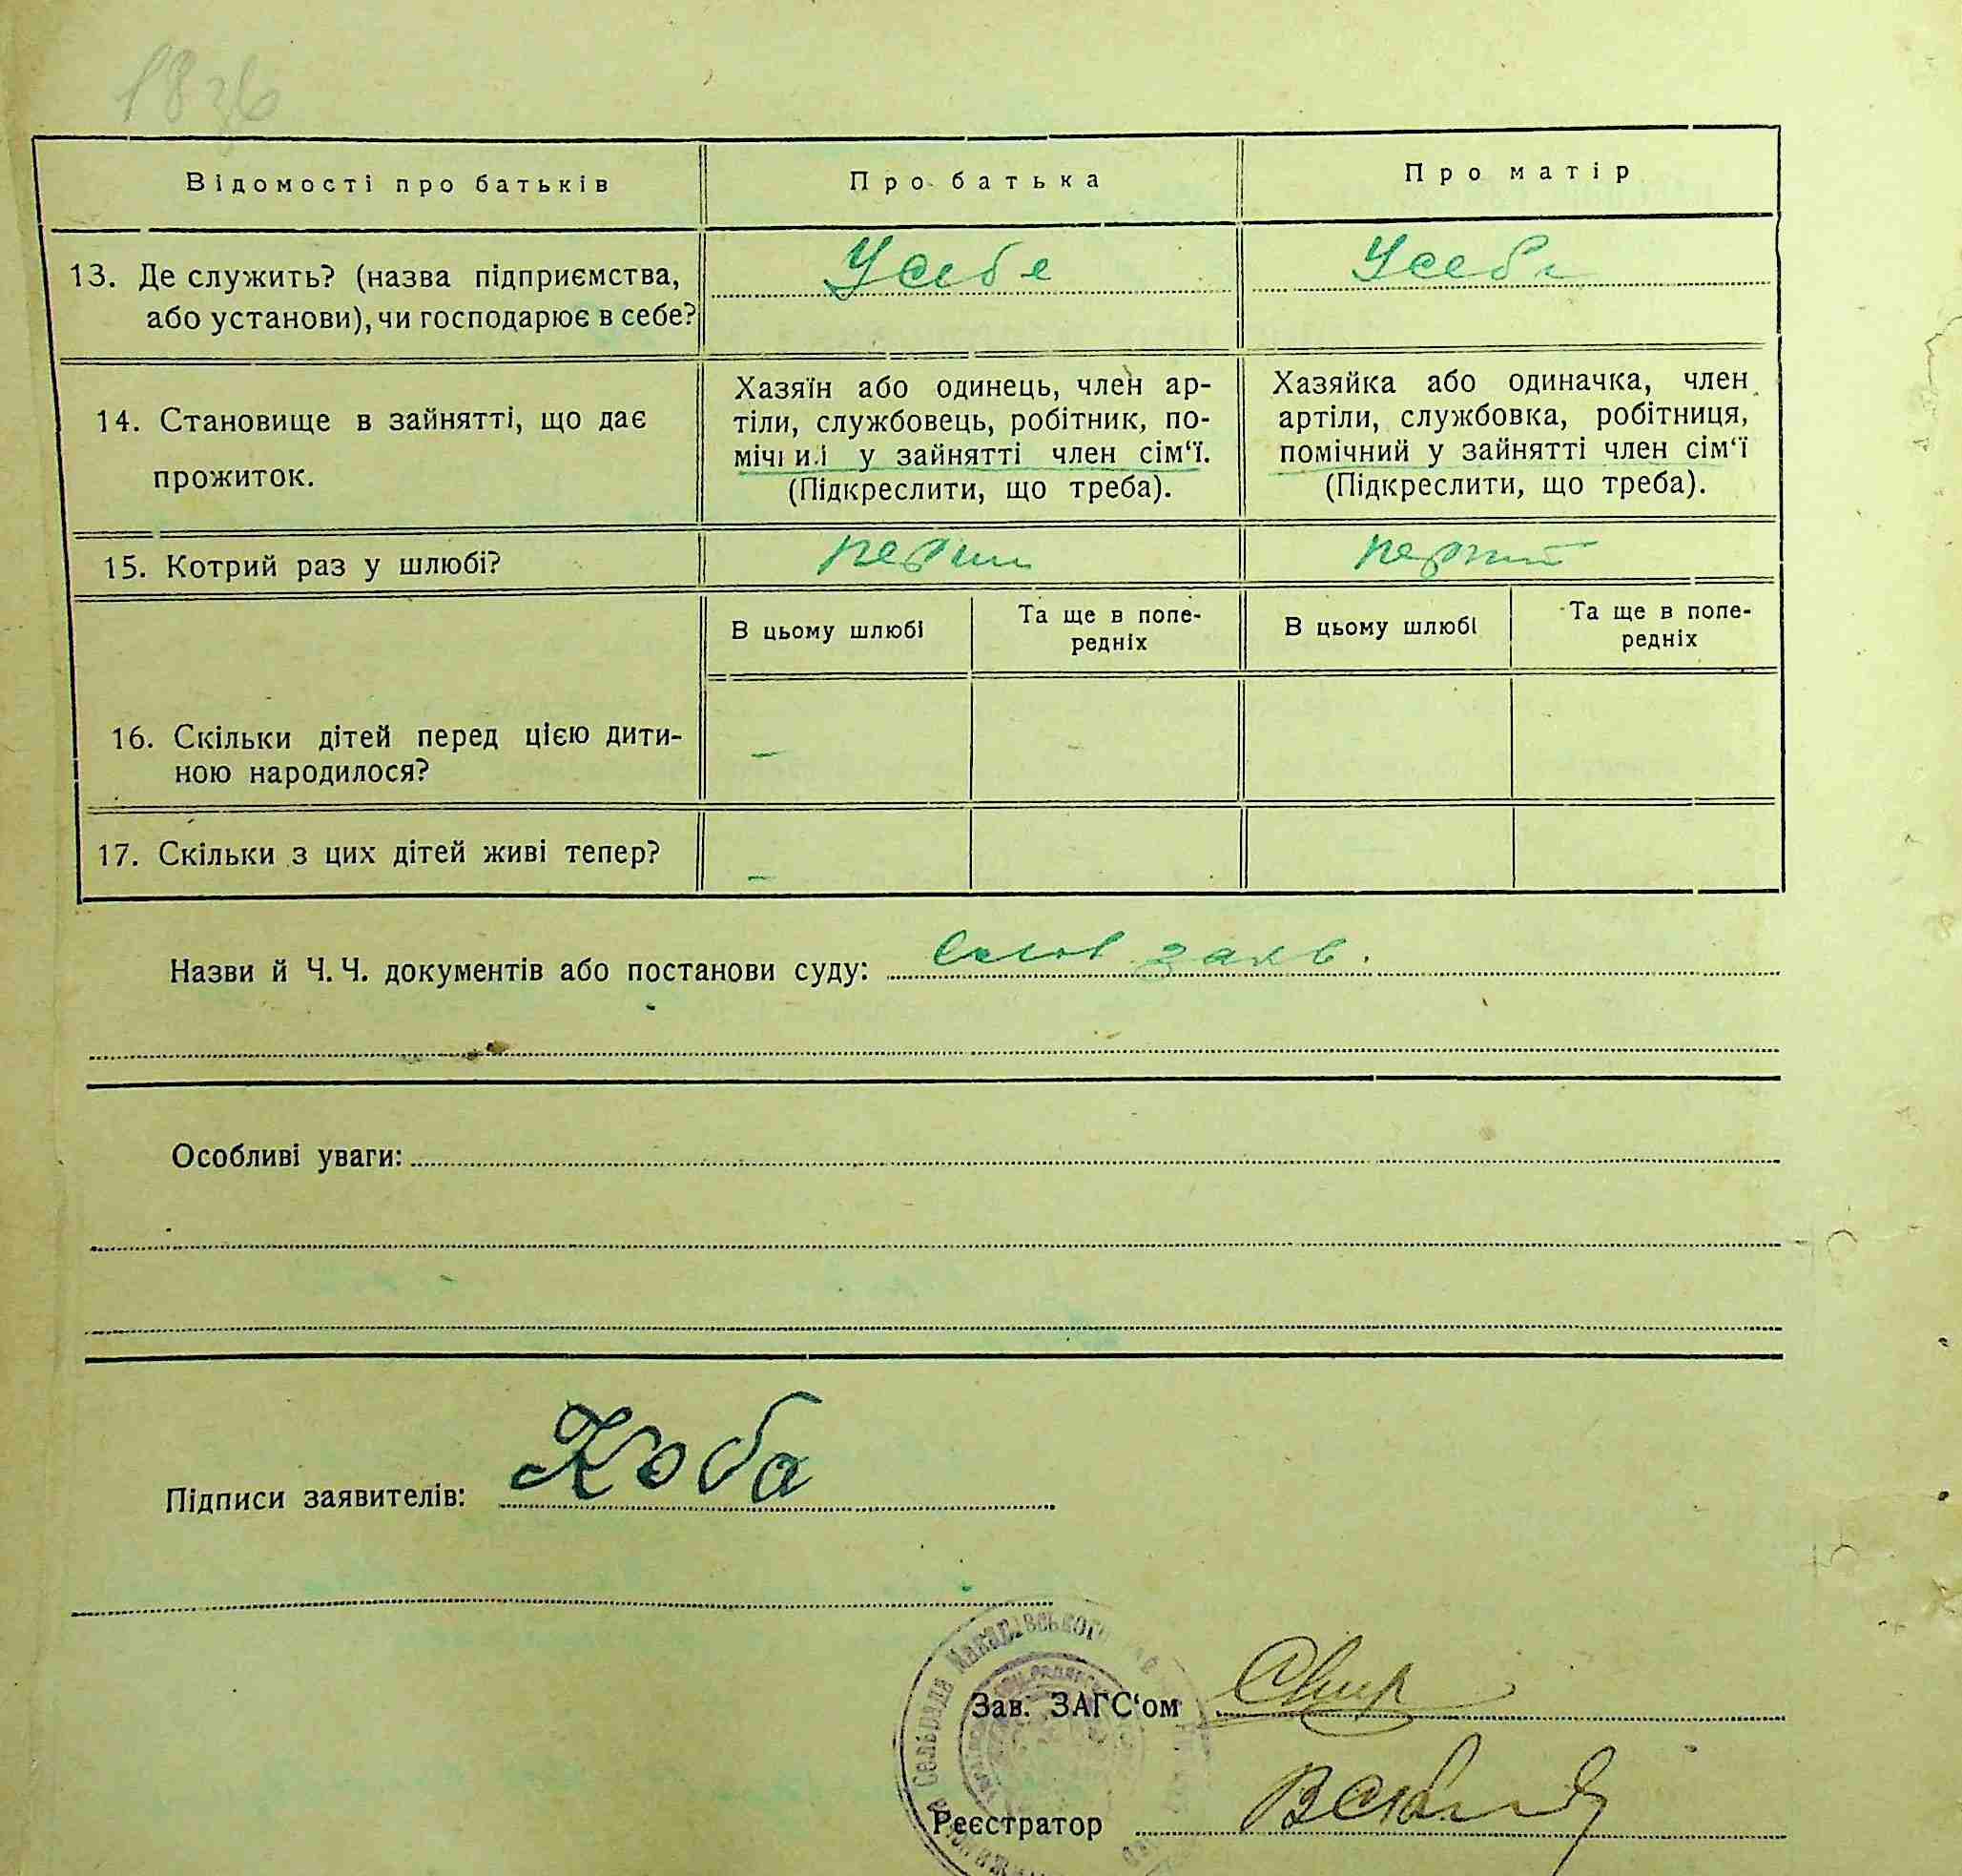 1836
Відомості про батьків
Про батька
Про матір
13. Де служить? (назва підприємства,
або установи), чи господарює в себе?
У себе
У себе
14. Становище в зайнятті, що дає
прожиток.
Хазяїн або одинець, член ар-
тіли, службовець, робітник, по-
мічний у зайнятті член сім‘ї.
(Підкреслити, що треба).
Хазяйка або одиначка, член
артіли, службовка, робітниця,
помічний у зайнятті член сім‘ї
(Підкреслити, що треба).
15. Котрий раз у шлюбі?
перший
перший
В цьому шлюбі
Та ще в попе-
редніх
В цьому шлюбі
Та ще в попе-
редніх
16. Скільки дітей перед цією дити-
ною народилося?
–
17. Скільки з цих дітей живі тепер?
–
Назви й Ч. Ч. документів або постанови суду: заяв.
Особливі уваги:
Підписи заявителів: Коба
Сельрада Макарівського
Зав. ЗАГС‘ом
Реєстратор